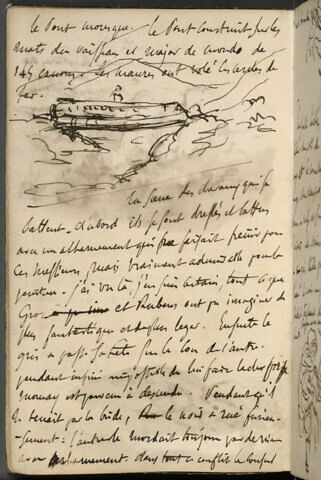 le Pont moresque. le Pont construit par les
mats du vaisseau et major de monde de
145 canons. Les maures ont volé les cercles de
fer.
la scène des chevaux qui se
battent. d'abord ils se sont dressés et battus
avec un acharnement qui faisait frémir pour
ces messieurs, mais vraiment admirable pour la
peinture. j'ai vu là j'en suis certain, tout ce que
Gros et Rubens ont pu imaginer de
plus fantastique et de plus leger. Ensuite le
gris a passé sa tête sur le cou de l'autre.
pendant un tems infini impossible de lui faire lacher prise
mornay est parvenu à descendre. Pendant qu'il
le tenait par la bride, le noir a rué furieu-
sement: l'autre le mordait toujours par derriere
avec acharnement. dans tout ce conflit le consul